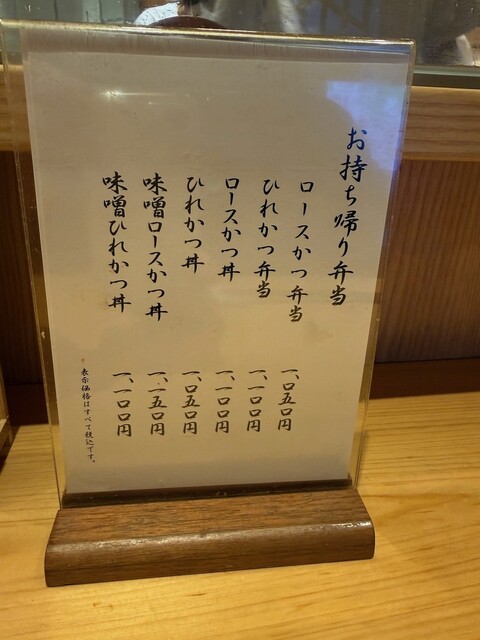 お持ち帰り弁当
ロースかつ弁当 一、〇五〇円
ひれかつ弁当 一、一〇〇円
ロースかつ丼 一、一〇〇円
ひれかつ丼 一、〇五〇円
味噌ロースかつ丼 一、一五〇円
味噌ひれかつ丼 一、一〇〇円
※表示価格はすべて税込です。